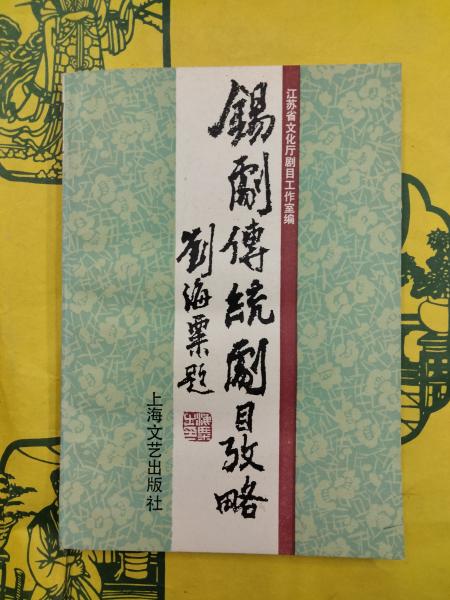 江苏省文化厅剧目工作室编
錫劇傳統劇目攷略
劉海粟題
上海文艺出版社